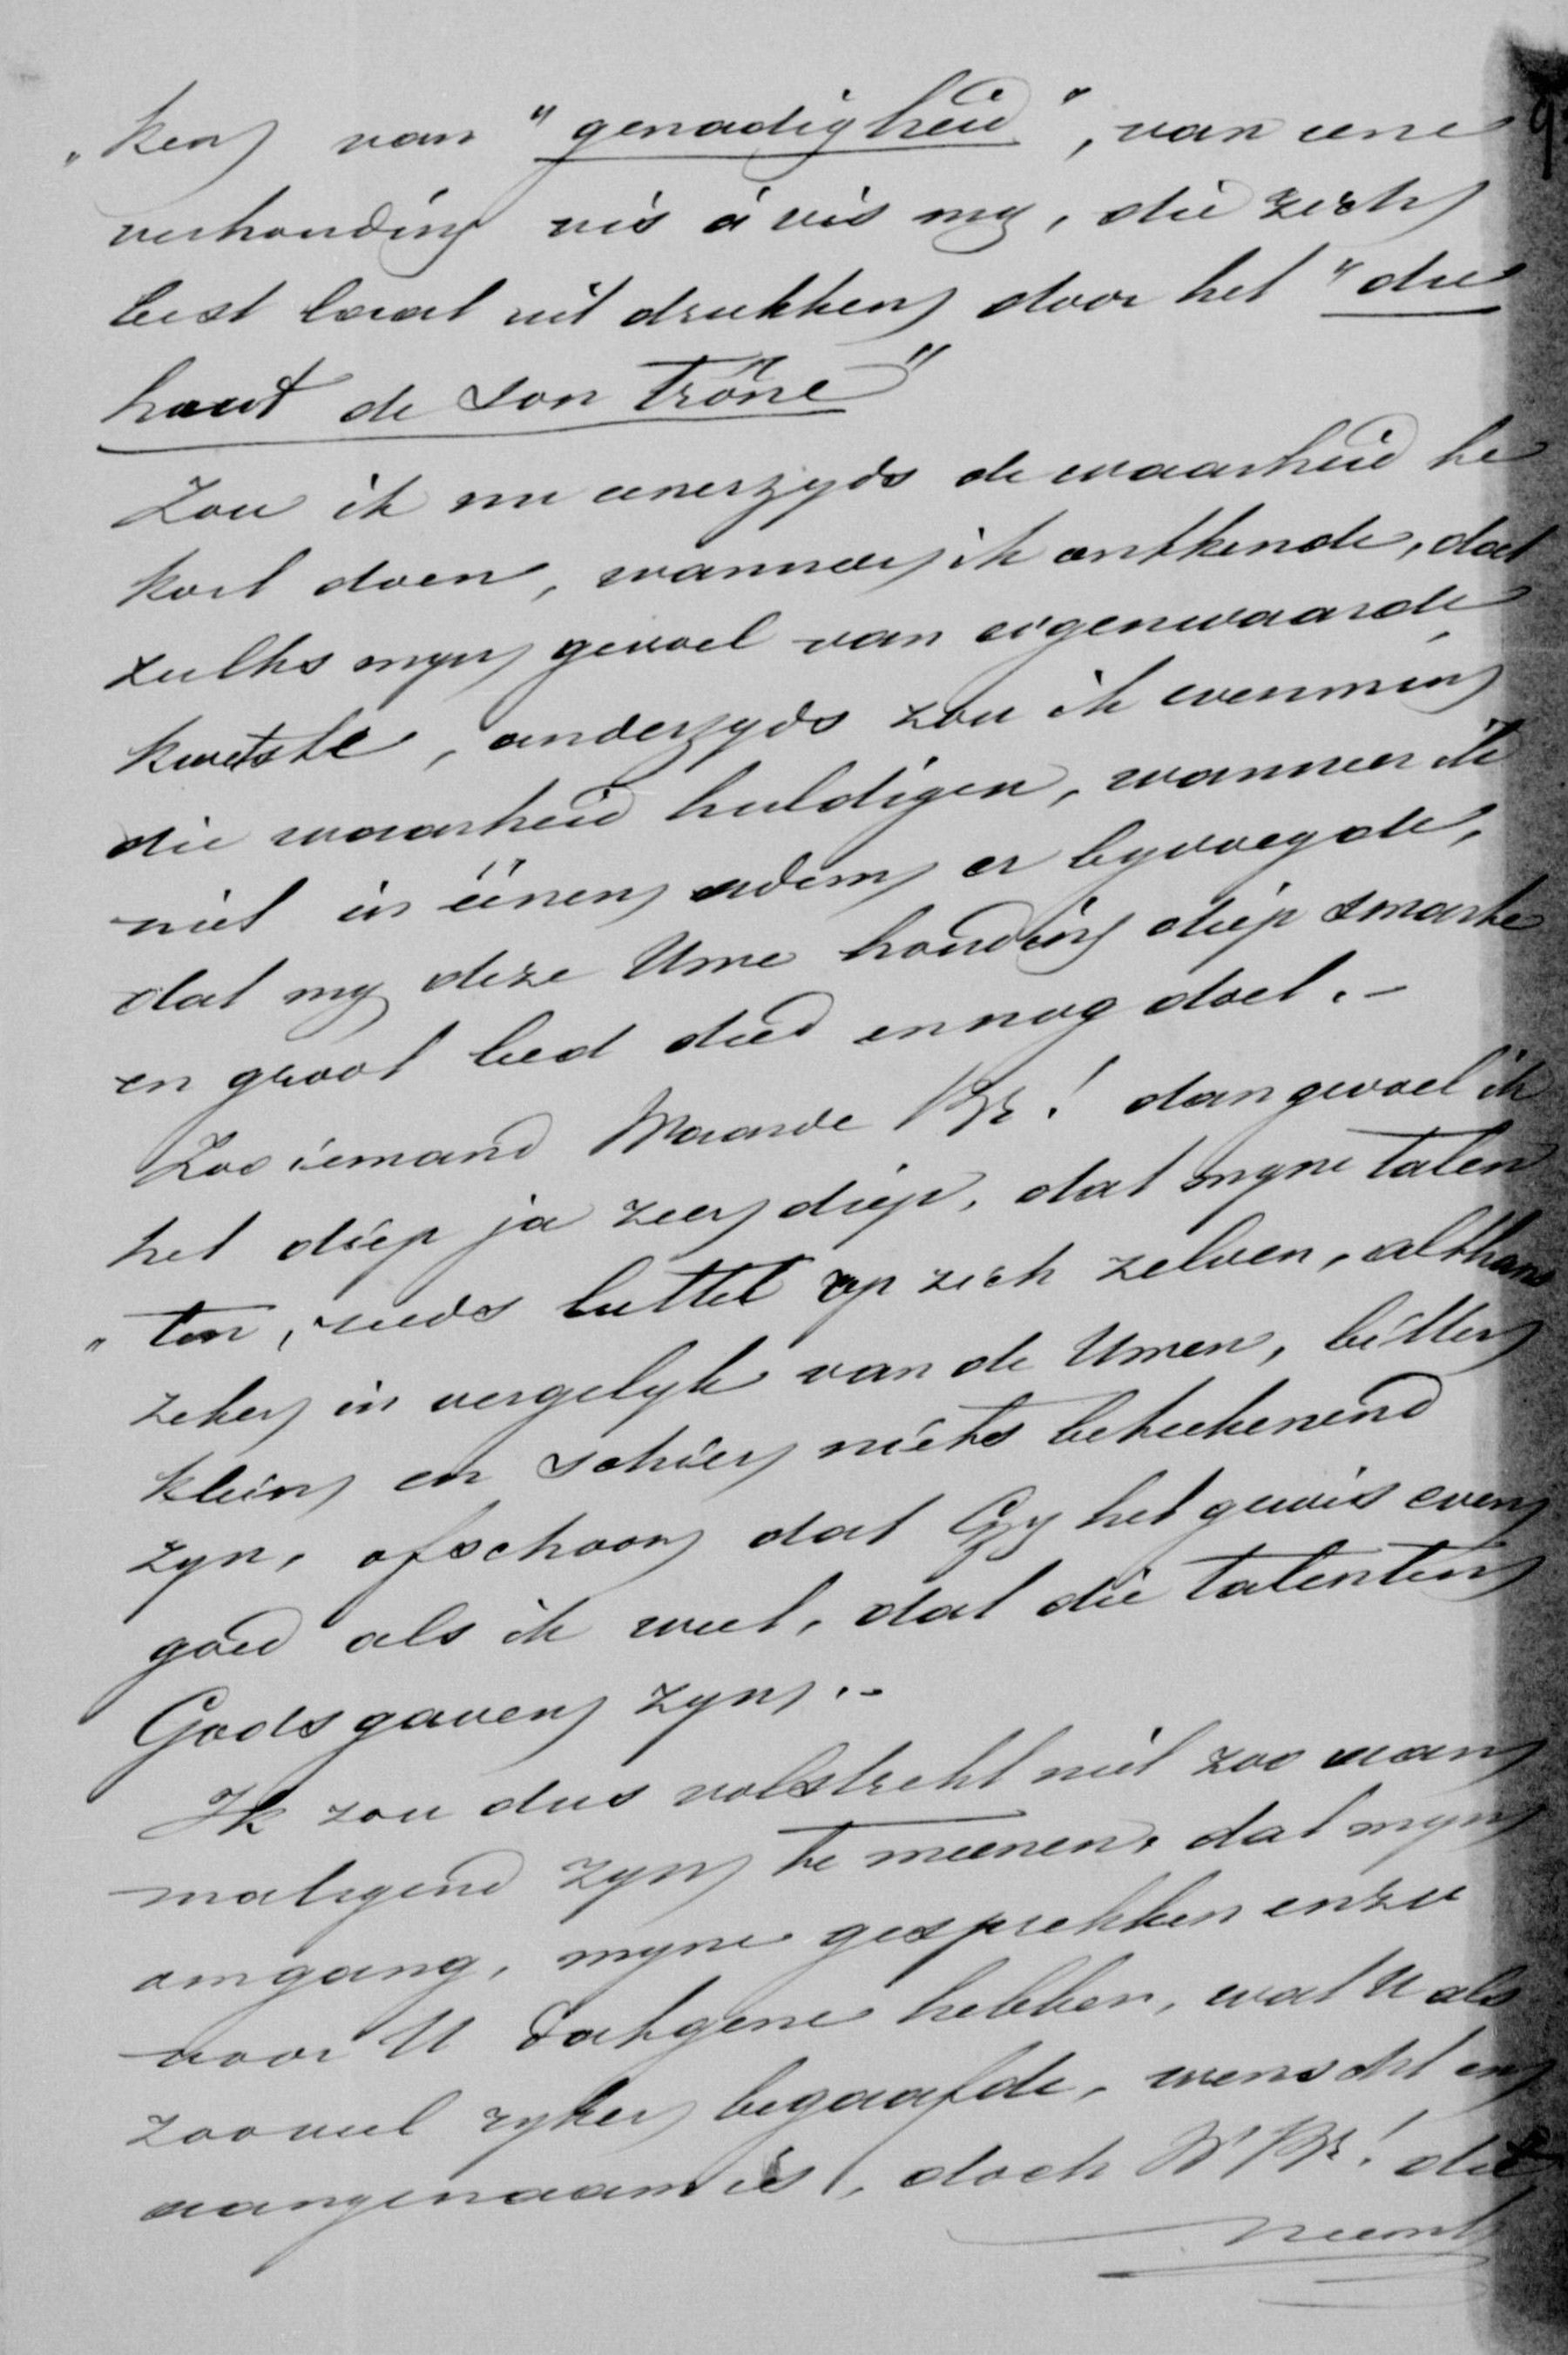 „ken van "genadigheid", van eene
verhouding vis á vis my, die zich
best laat uit drukken door het "du
haut de son trône"
Zou ik nu eenerzyds de waarheid te
kort doen, wanneer ik ontkende, dat
zulks myn gevoel van eigenwaarde
kwetste, anderzyds zou ik evenmin
die waarheid huldigen, wanneer ik
niet in éénen adem er byvoegde,
dat my deze Uwe houding diep smartte
en groot leed deed en nog doet.-
Zoo iemand Waarde Br! dan gevoel ik
het diep ja zeer diep, dat myne talen
„ten, reeds luttel op zich zelven, althans
zeker in vergelyk van de Uwen, bitter
klein en schier niets beteekenend
zyn, ofschoon dat Gy het gewis even
goed als ik weet, dat die talenten
Godsgaven zyn.-
Ik zou dus volstrekt niet zoo aan
matigend zyn te meenen, dat myn
omgang, myne gesprekken enzv
voor U datgene hebben, wat U als
zooveel ryker begaafde, wenscht en
aangenaam is, doch W Br! dit
neemt